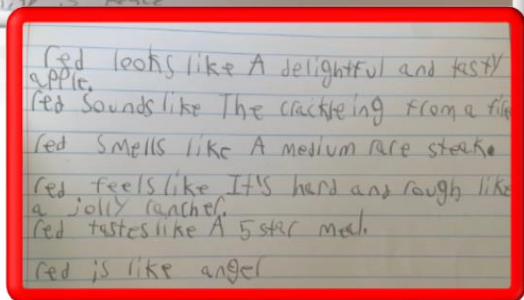 red looks like A delightful and tasty
apple.
red Sounds like The crackleing from a fire
red smells like A medium rare steak.
red feels like It's hard and rough like
a jolly rancher.
red tastes like A 5 star meal.
red is like angel